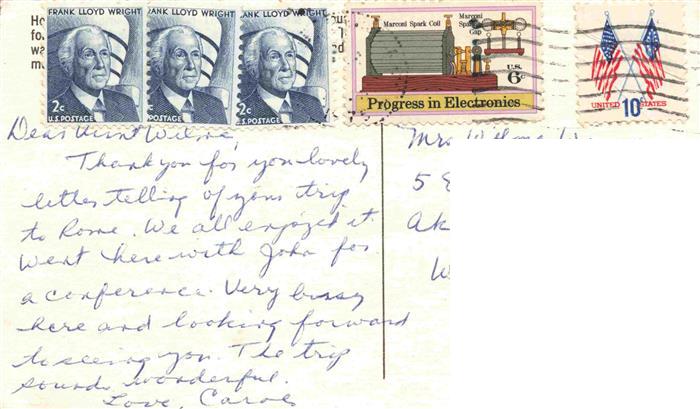 FRANK LLOYD WRIGHT
ANK LLOYD WRIGHT
ANK LLOYD WRIGHT
2c
2c
2c
U.S.POSTAGE
.S.POSTAGE
.S.POSTAGE
Marconi Spark Coil
Marconi
Spark
Gap
U.S.
6c
Progress in Electronics
UNITED STATES
10c
Dear Aunt Wilma,
Thank you for you lovely
letter telling of your trip
to Rome. We all enjoyed it.
Went here with John for
a conference. Very bussy
here and looking forward
to seeing you. The trip
sounds wonderful.
Love, Carol
Mrs. Wilma
5
Ak
W